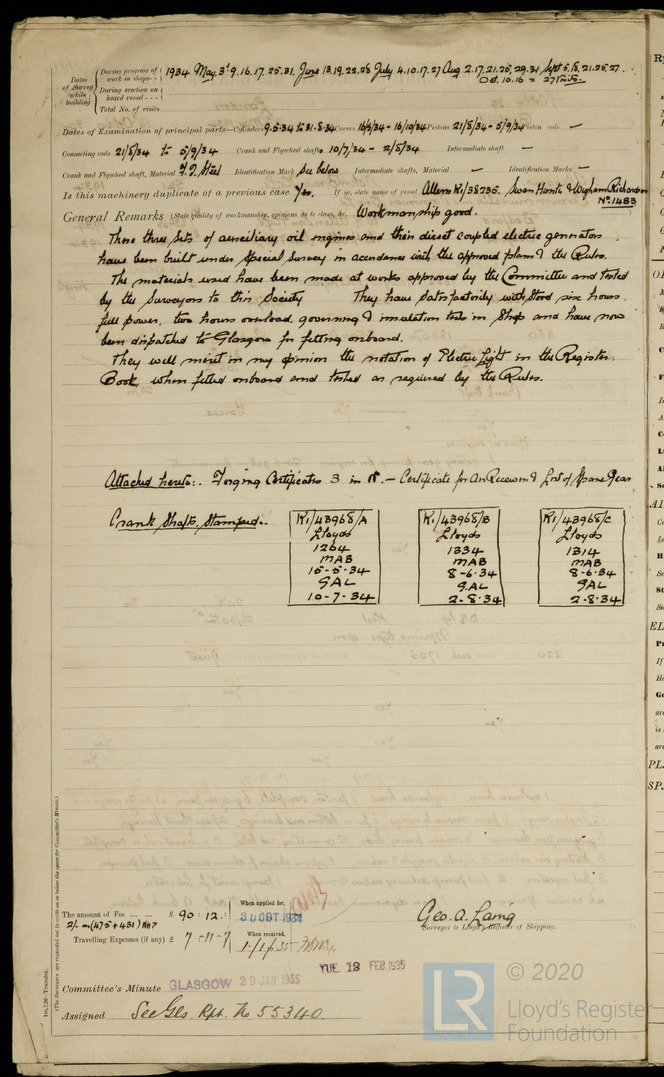 Dates of Survey while building
During progress of work in shops - - 1934 May 3rd 9.16.17.25.31. June 13.19.22.28 July 4.10.17.27 Aug 2.17.21.25.29.31 Sept 5.18.21.25.27.
During erection on board vessel - - - Oct. 10.16 = 27 Visits.
Total No. of visits
Dates of Examination of principal parts—Cylinders 9.5.34 to 31.8.34 Covers 16/5/34 - 16/10/34 Pistons 21/8/34 - 5/9/34 Piston rods —
Connecting rods 21/8/34 to 5/9/34 Crank and Flywheel shafts 10/7/34 - 2/8/34 Intermediate shaft —
Crank and Flywheel shaft, Material Steel Identification Mark See below Intermediate shafts, Material — Identification Marks —
Is this machinery duplicate of a previous case Yes. If so, state name of vessel Allens K1/38235. Swan Hunter & Wigham Richardson
No. 1483
General Remarks (State quality of workmanship, opinions as to class, &c. Workmanship good.
These three sets of auxiliary oil engines and their direct coupled electric generators
have been built under special survey in accordance with the approved plans & the Rules.
The materials used have been made at works approved by the Committee and tested
by the Surveyors to this Society They have satisfactorily withstood six hours
full power, two hours overload, governing & insulation tests in Shop and have now
been dispatched to Glasgow for fitting onboard.
They will merit in my opinion the notation of Electric Light in the Register
Book, when fitted onboard and tested as required by the Rules.
Attached hereto:. Forging Certificates 3 in No. — Certificate for Air Receiver & List of Spare Gear
Crank Shafts, Stamped..
K1/43968/A
Lloyds
1264
MAB
15-5-34
GAL
10-7-34
K1/43968/B
Lloyds
1334
MAB
8-6-34
GAL
2-8-34
K1/43968/C
Lloyds
1314
MAB
8-6-34
GAL
2-8-34
Im.7,26—Transfer.
(The Surveyors are requested not to write on or below the space for Committee's Minute.)
The amount of Fee ... ... £ 90 : 12 :
When applied for, 30 OCT 1934
2/- on (475 + 431) BHP
Travelling Expenses (if any) £ 7 - 11 - 7
When received,
Geo. A. Laing
Surveyor to Lloyd's Register of Shipping.
TUE. 12 FEB 1935
Committee's Minute GLASGOW 29 JAN 1935
Assigned See Gls. Rpt. No 55340.
LR
© 2020
Lloyd's Register
Foundation